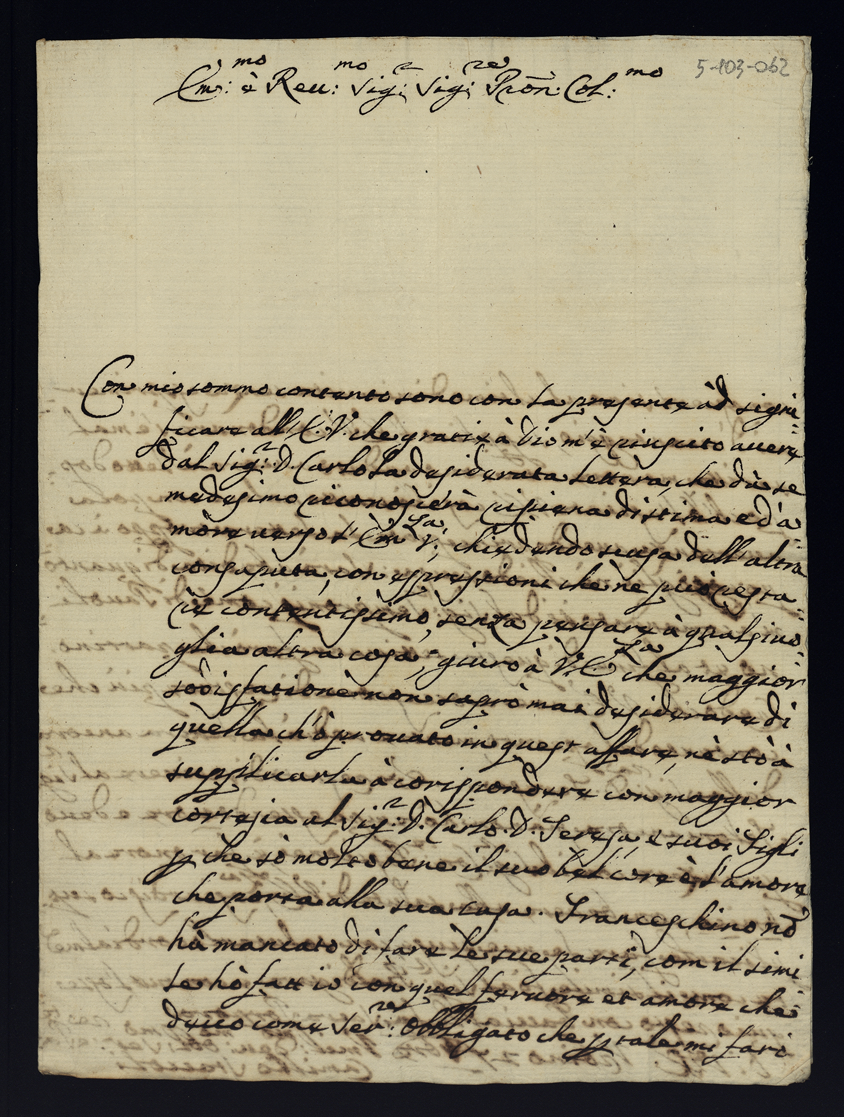 5-103-062
Em:mo è Reu:mo Sig:r Sig:re Pron: Col:mo
Con mio sommo contento sono con la presente àd signi=
ficare all'E.V. che gratie à Dio m'è riuscito auere
dal Sig:r D. Carlo la desiderata lettera, che dà se
medesimo riconoscierà ripiena di stima ed'a=
more uerso l'Em:za V:, chiedendo scusa dell'altra
consaputa, con espressioni che ne può resta=
re contentissimo, senza pensare à qualsiuo=
glia altra cosa; giuro à V.E:za che maggior
sodisfatione non saprò mai desiderare di
quella ch'ò prouato in quest'affare, nè stò à
supplicarla à corispondere con maggior
cortesia al Sig:r D. Carlo D. Teresa, e suoi Figli
p che sò molto bene il suo bel core è l'amore
che porta alla sua casa. Franceschino nō
hà mancato di fare le sue parti, com il simi
le hò fatt'io con quel feruore et amore che
deuo come Ser:re obbligato che p tale mi farò